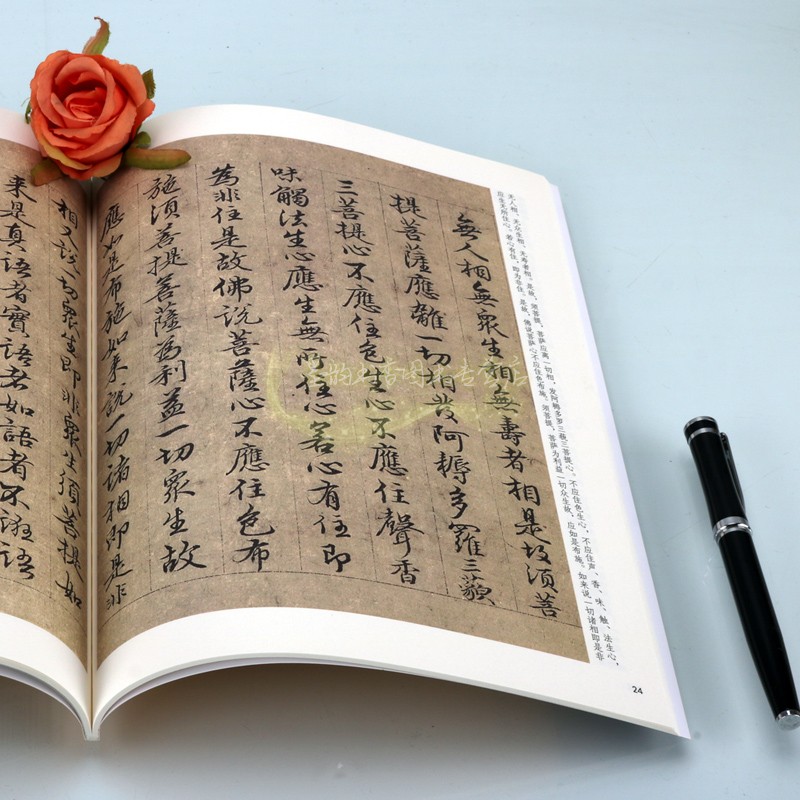 无人相、无众生相、无寿者相。是故，须菩提，菩萨应离一切相，发阿耨多罗三藐三菩提心。不应住色生心，不应住声、香、味、触、法生心，
应生无所住心。若心有住，即为非住。是故，佛说菩萨心不应住色布施。须菩提，菩萨为利益一切众生故，应如是布施。如来说一切诸相即是非
無人相無衆生相無壽者相是故須菩
提菩薩應離一切相發阿耨多羅三藐
三菩提心不應住色生心不應住聲香
味觸法生心應生無所住心若心有住即
為非住是故佛說菩薩心不應住色布
施須菩提菩薩為利益一切衆生故
應如是布施如来說一切諸相即是非
相又說一切衆生即非衆生須菩提如
来是真語者實語者如語者不誑語
24